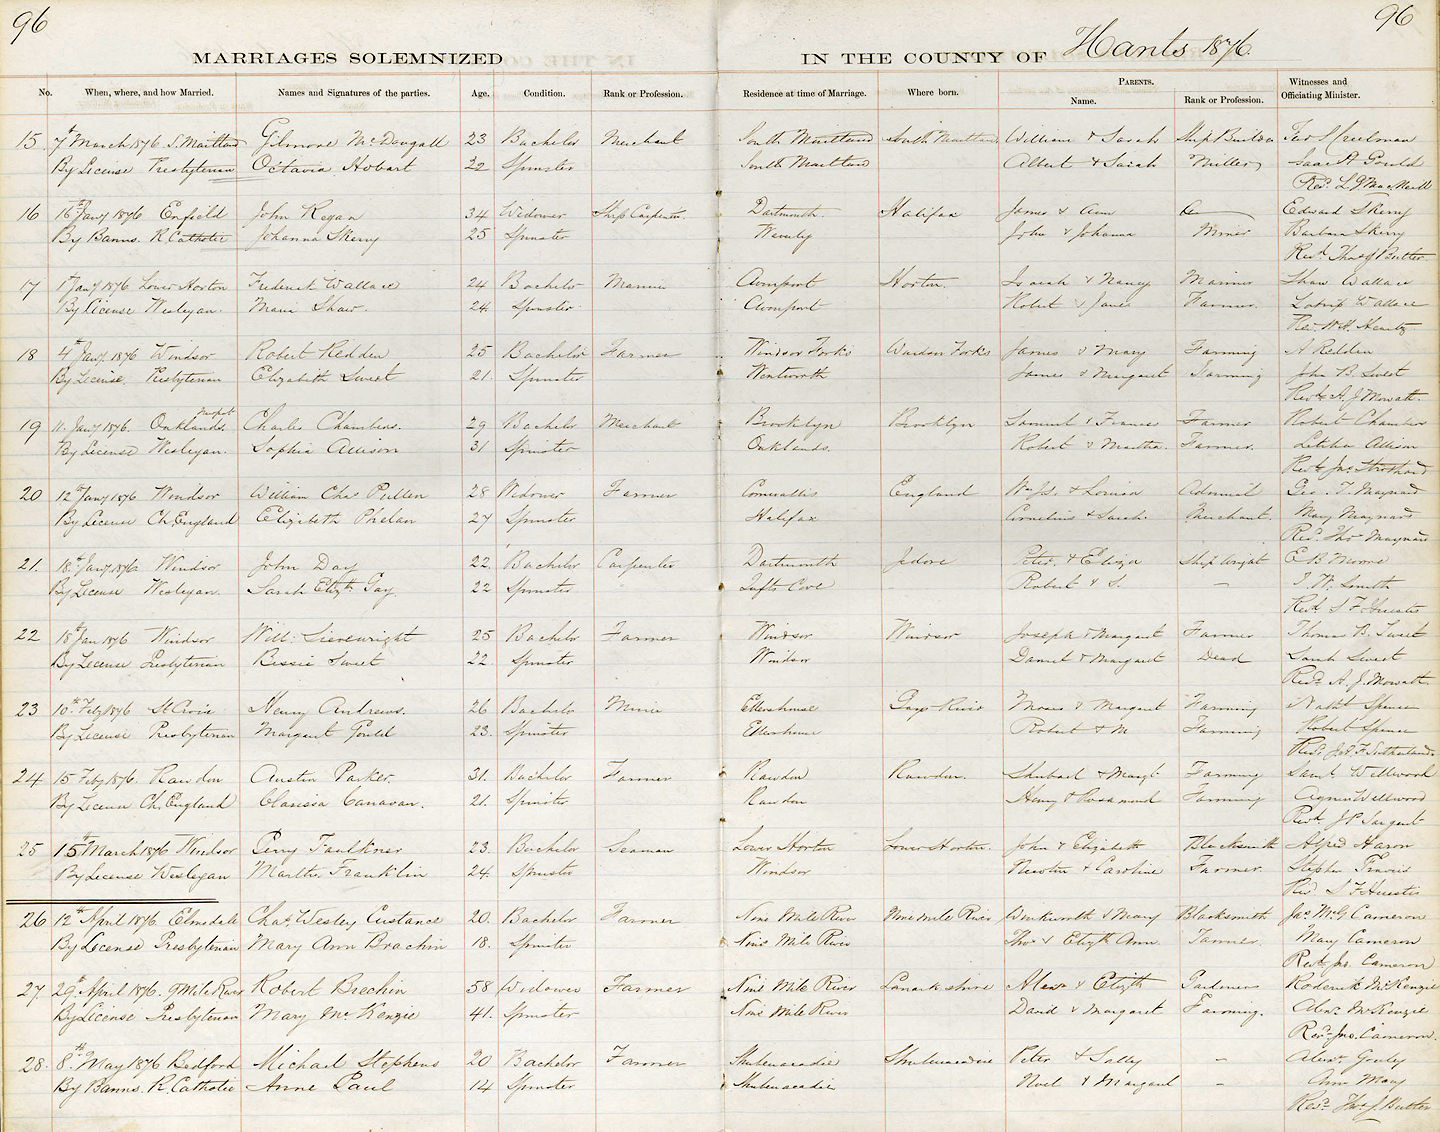 96 96
MARRIAGES SOLEMNIZED IN THE COUNTY OF Hants 1876.
No. When, where, and how Married. Names and Signatures of the parties. Age. Condition. Rank or Profession. Residence at time of Marriage. Where born. PARENTS. Name. Rank or Profession. Witnesses and Officiating Minister.
15 7th March 1876 S. Maitland Gilmore McDougall 23 Bachelor Merchant South Maitland South Maitland William & Sarah Ship Builder Creelman
By License Presbyterian Octavia Hobart 22 Spinster South Maitland Albert & Sarah Miller Isaac A Gould
Revd. L. G. MacNeill
16 16th Jany 1876 Enfield John Regan 34 Widower Ship Carpenter Dartmouth. Halifax James & Ann Edward Skerry
By Banns. R. Catholic Johanna Skerry 25 Spinster Waverley John & Johanna Miner Barbara Skerry
Revd. Thos J Butler.
17 1st Jany 1876 Lower Horton Frederick Wallace 24 Bachelor Avonport Horton. & Nancy Mariner Shaw Wallace
By License Wesleyan. Maria Shaw. 24. Spinster Avonport Robert & Jane Farmer. Wallace
Rev W. H. Heartz
18 4th Jany. 1876 Windsor Robert Redden 25 Bachelor Farmer Windsor Forks Windsor Forks James & Mary Farming A Redden
By License. Presbyterian Elizabeth Sweet 21. Spinster Wentworth James & Margaret Farming John B. Sweet
Revd. A. J. Mowatt.
19 11. Jany 1876. Oaklands Newport Charles Chambers. 29 Bachelor Merchant Brooklyn Brooklyn Samuel & Frances Farmer Robert Chambers
By License Wesleyan. Sophia Allison 31 Spinster Oaklands. Robert & Martha. Farmer. Letitia Allison
Revd. Jno. Strothard
20 12th Jany 1876 Windsor William Chas Pullen 28 Widower Farmer Cornwallis England & Louisa Admiral Geo. T. Maynard
By License Ch. England Elizabeth Phelan 27 Spinster Halifax Cornelius & Sarah Merchant. Mary Maynard
Revd. Thos Maynard
21. 18th Jany 1876 Windsor John Day 22. Bachelor Carpenter Dartmouth Jedore Peter & Eliza Shipwright E B Moore
By License Wesleyan. Sarah Elizth Gay 22 Spinster Tufts Cove Robert & S. — J. W. Smith
Revd S F Huestis
22 18th Jan 1876 Windsor Will: Sievewright 25 Bachelor Farmer Windsor Windsor Joseph & Margaret Farmer Thomas B. Sweet
By License Presbyterian Bessie Sweet 22. Spinster Windsor Daniel & Margaret Dead Sarah Sweet
Revd. A. J. Mowatt.
23 10th Feby 1876 St Croix Henry Andrews. 26 Bachelor Ellershouse Moses & Margaret Farming
By License Presbyterian Margaret Gould 23. Spinster Ellershouse Robert & M Farming Robert Spence
Revd. Sutherland.
24 15 Feby 1876. Rawdon Austin Parker. 31. Bachelor Farmer Rawdon Rawdon. Shubael & Margt. Farming Saml. Wellwood
By License Ch. England Clarissa Canavan. 21. Spinster Rawdon Henry & Rosamond Farming Agnes Wellwood
Revd. J P Sargent
25 15th March 1876 Windsor Perry Faulkner 23. Bachelor Seaman Lower Horton Lower Horton. John & Elizabeth Blacksmith Alfred Haron
By License Wesleyan Martha Franklin 24. Spinster Windsor Newton & Caroline Farmer. Stephen
Revd S F Huestis
26 12th April 1876 Elmsdale Chas. Wesley Custance 20. Bachelor Farmer Nine Mile River Nine Mile River Wentworth & Mary Blacksmith Jas. McG Cameron
By License Presbyterian Mary Ann Brachin 18. Spinster Nine Mile River Thos & Elizth Ann Farmer. Mary Cameron
Revd. Jno. Cameron
27. 29th April 1876. 9 Mile River Robert Brechin 58 Widower Farmer Nine Mile River Lanarkshire Alexr & Elizth Gardener Roderick McKenzie
By License Presbyterian Mary McKenzie 41. Spinster Nine Mile River David & Margaret Farming. Alexr McKenzie
Revd. Jno. Cameron.
28. 8th May 1876 Bedford Michael Stephens 20 Bachelor Farmer Shubenacadie Shubenacadie Peter & Sally — Alexr. Gouley
By Banns. R. Catholic Anne Paul 14 Spinster Shubenacadie Noel & Margaret Ann Mary
Revd. Thos. J. Butler